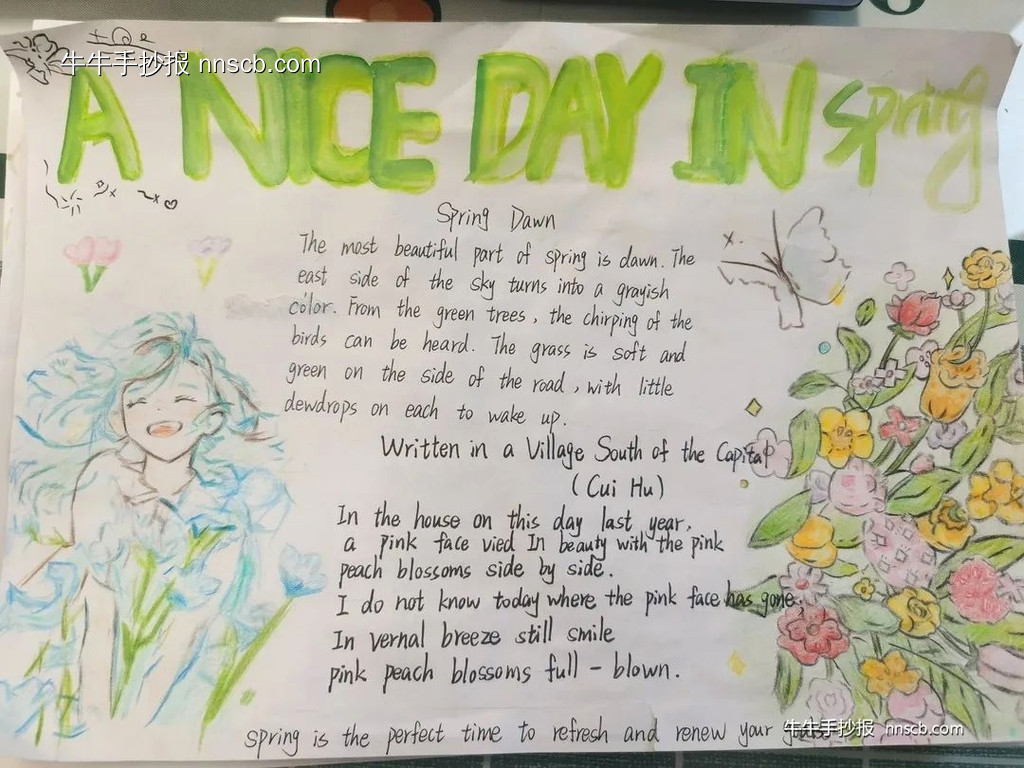 牛牛手抄报 nnscb.com
A NICE DAY IN spring
Spring Dawn
The most beautiful part of spring is dawn. The
east side of the sky turns into a grayish
color. From the green trees, the chirping of the
birds can be heard. The grass is soft and
green on the side of the road, with little
dewdrops on each to wake up.
Written in a Village South of the Capital
(Cui Hu)
In the house on this day last year,
a pink face vied In beauty with the pink
peach blossoms side by side.
I do not know today where the pink face has gone,
In vernal breeze still smile
pink peach blossoms full-blown.
spring is the perfect time to refresh and renew your
牛牛手抄报 nnscb.com